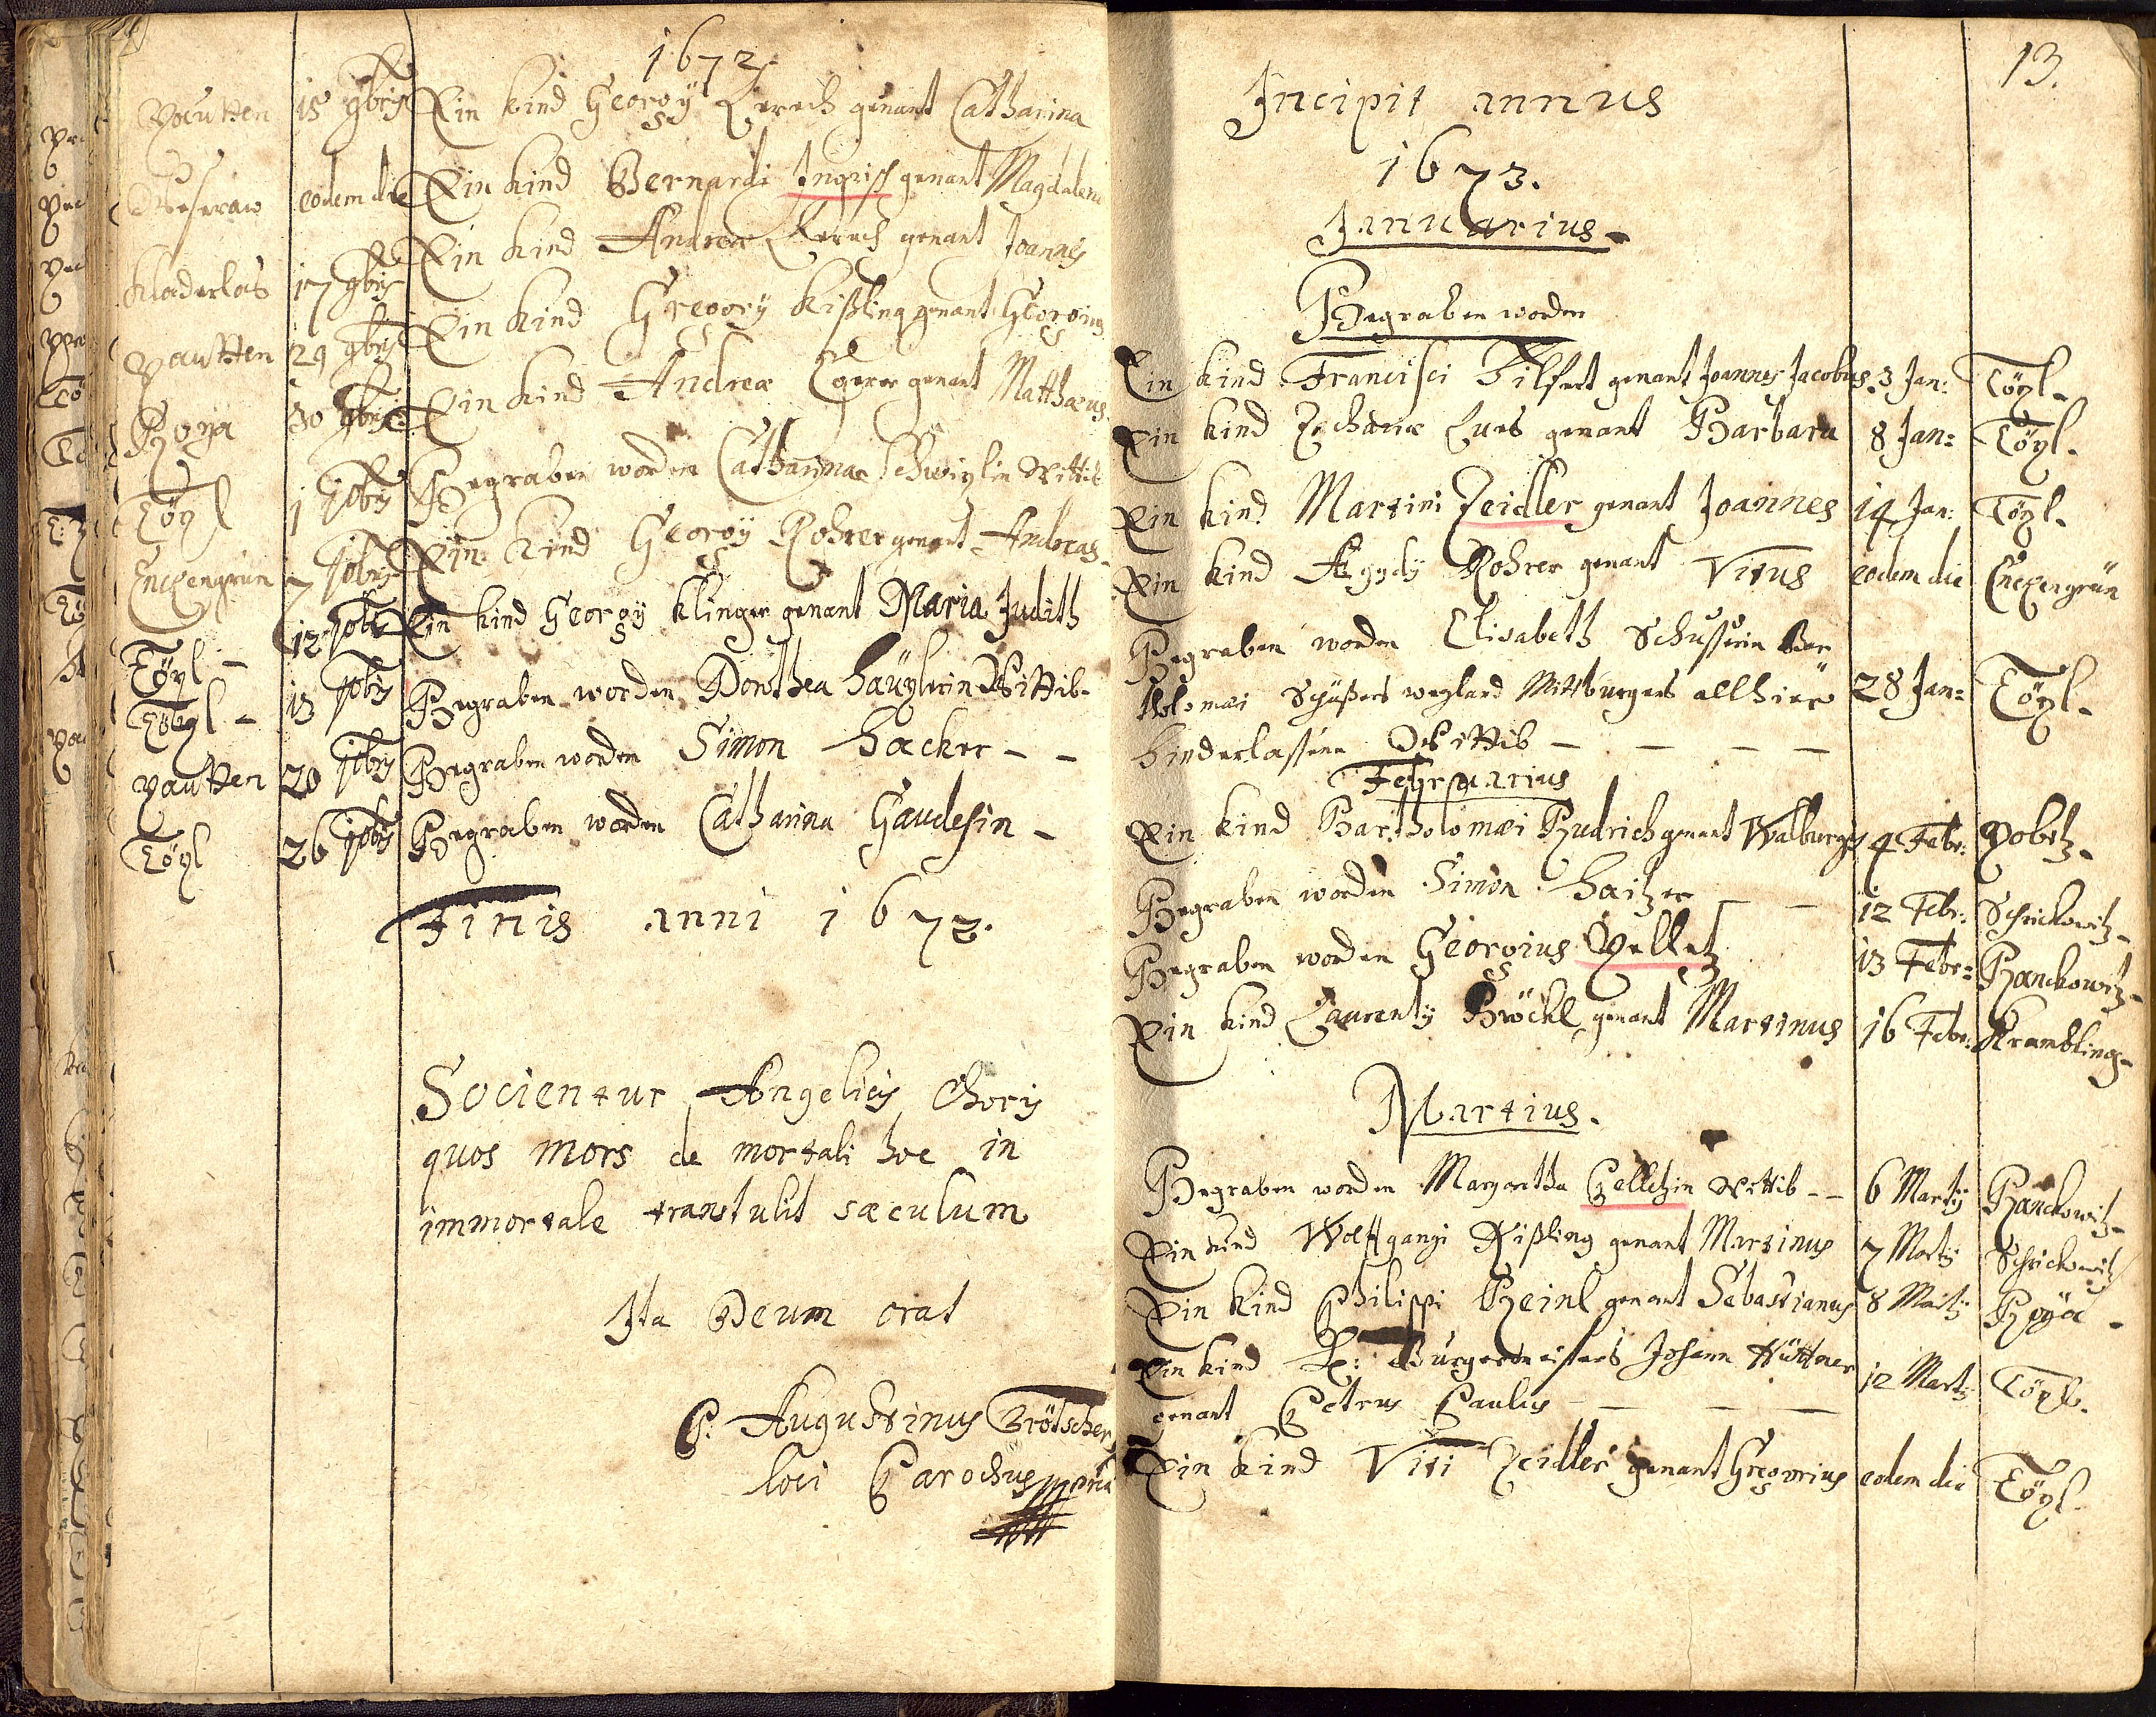 1672
Pautten 15 9bris Ein kind Georgÿ Lerech genant Catharina
Weseraw eodem die Ein kind Bernardi Ingrisch genant Magdalena
Kladerlas 17 9bris Ein kind Andreæ Lerech genant Joannes
Pautten 29 9bris Ein kind Gregorÿ Kißling genant Georgius
Royä 30 9bris Ein kind Andreæ Egerer genant Matthæus
Töpl 1 xbris Begraben worden Catharina Wittib
Enckengrün 7 xbris Ein kind Georgÿ Rohrer genant Andreas
Töpl - 12 xbris Ein kind Georgÿ Klinger genant Maria Judith
Töpl - 13 xbris Begraben worden Dorothea Wittib-
Pautten 20 xbris Begraben worden Simon Hacker - -
Töpl 26 xbris Begraben worden Catharina Gaudesin -
Finis anni 1672.
Socientur Angelicis Choris
quos mors de mortali hoc in
immortale transtulit sæculum
Ita Deum orat
P: Augustinus
loci Parochus mpria
13.
Incipit annus
1673.
Januarius-
Begraben worden
Ein kind Francisci Hilfert genant Joannes Jacobus. 3 Jan: Töpl-
Ein kind Zachariæ genant Barbara 8 Jan: Töpl.
Ein kind Martini Zeidler genant Joannes 14 Jan: Töpl.
Ein kind Ægydÿ Rohrer genant Vitus eodem die Enckengrün
Begraben worden Elisabeth Schusterin Bar
tholomæi weyland Mittburgers allhier 28 Jan: Töpl-
hinderlassene Wittib - - - -
Februarius
Ein kind Bartholomæi Rudrich genant Walburgis 4 Febr: Pobitz-
Begraben worden Simon Haitzer - - 12 Febr: Schrickowitz-
Begraben worden Georgius Pelletz 13 Febr: Hanckowitz-
Ein kind Laurentÿ Bröckl genant Martinus 16 Febr: Krambling-
Martius.
Begraben worden Margaretha Pelletzin Wittib - - 6 Martÿ Hanckowitz-
Ein kind Wolffgangi Kißling genant Martinus 7 Martÿ Schrickowitz
Ein kind Philippi Heinl genant Sebastianus 8 Martÿ Royä -
Ein kind H: Burgermeisters Johann Hüttner
genant Petrus Paulus - - - 12 Martÿ Töpl.
Ein kind Viti Zeidler genant Gregorius eodem die Töpl.